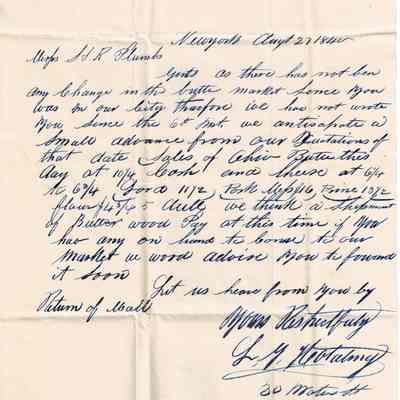 New york Augt 27 184
Messrs S & R Plumbs
Gents as there has not ben
any Change in the butter market Since you
was in our City therefore we has not wrote
you Since the 6th Inst. we antisapate a
Small advance from our Quotations of
that date Sales of Ohio Butter this
day at 10 1/4 Cash and cheese at 6 1/4
to 6 3/4 Good 11 1/2 Pork Prime
flour dull we think a Shipment
of Butter wood Pay at this time if you
has any on hand to Come to our
Market we wood advise you to forward
it Soon
Let us hear from you by
Return of Mall
Yours Respectfuly
L
30 Water St